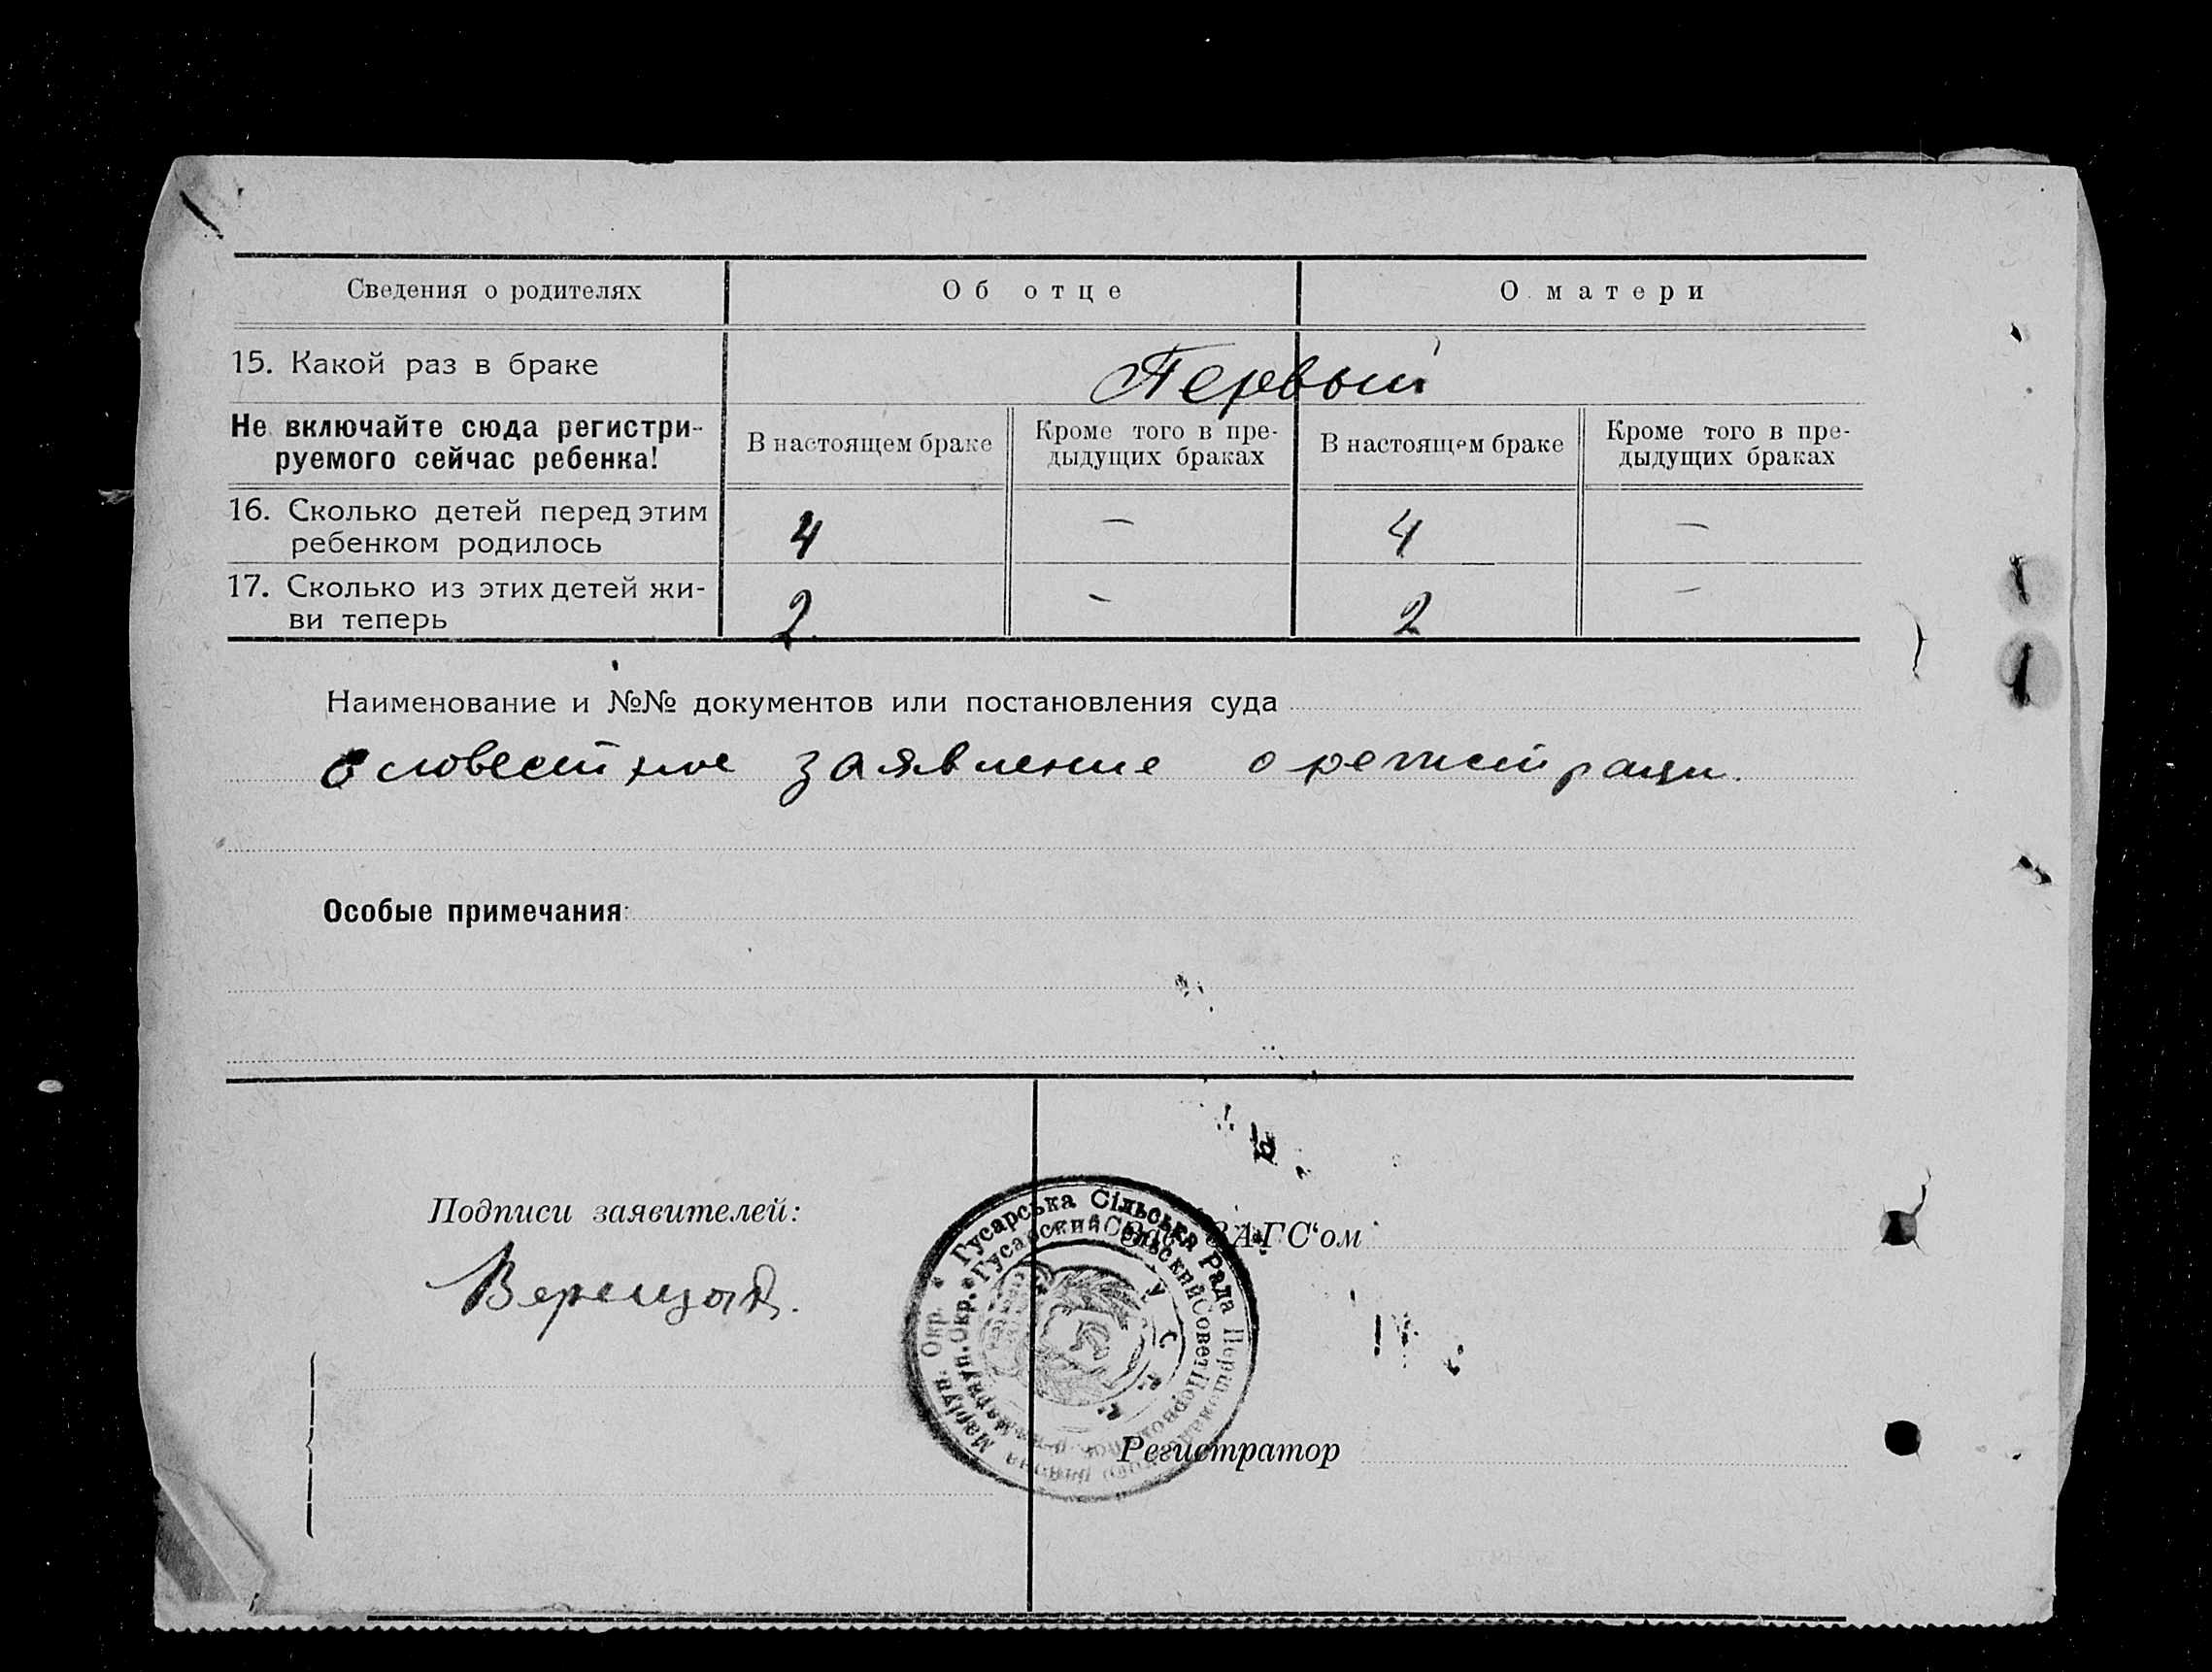 Сведения о родителях Об отце О матери
15. Какой раз в браке Первый
Не включайте сюда регистри-
руемого сейчас ребенка!
В настоящем браке
Кроме того в пре-
дыдущих браках
В настоящем браке
Кроме того в пре-
дыдущих браках
16. Сколько детей перед этим
ребенком родилось
4 — 4 —
17. Сколько из этих детей жи-
ви теперь
2 — 2 —
Наименование и №№ документов или постановления суда
словестное заявление о регистраци.
Особые примечания:
Подписи заявителей:
ЗАГС'ом
Регистратор
Гусарська Сільська Рада
Маріуп. Окр.
Гусарский Сельский Совет
Мариуп. Окр.
У. С. Р. Р.